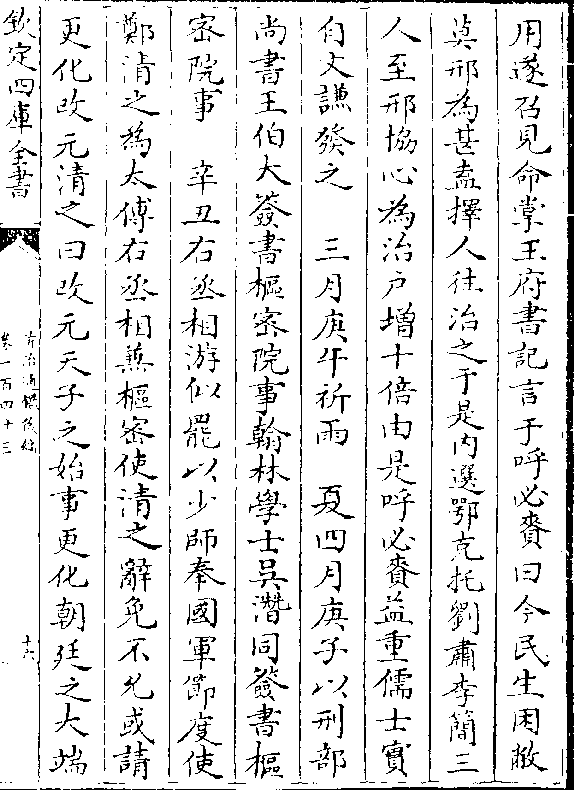 用遂召見命掌王府書記言于呼必賚曰今民生困敝
莫邢為甚盍擇人往治之于是内選鄂克托劉肅李簡三
人至邢協心為治户增十倍由是呼必賚益重儒士實
自文謙發之　三月庚午祈雨　夏四月庚子以刑部
尚書王伯大簽書樞密院事翰林學士吳濳同簽書樞
密院事　辛丑右丞相游似罷以少師奉國軍節度使
鄭清之為太傅右丞相兼樞密使清之辭免不允或請
更化改元清之曰改元天子之始事更化朝廷之大端
欽定四庫全書
資治通鑑後編
卷一百四十三
十六